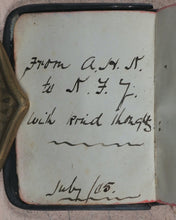 From A. H. N.
to N. F. J.
with kind thoughts:
July /05.